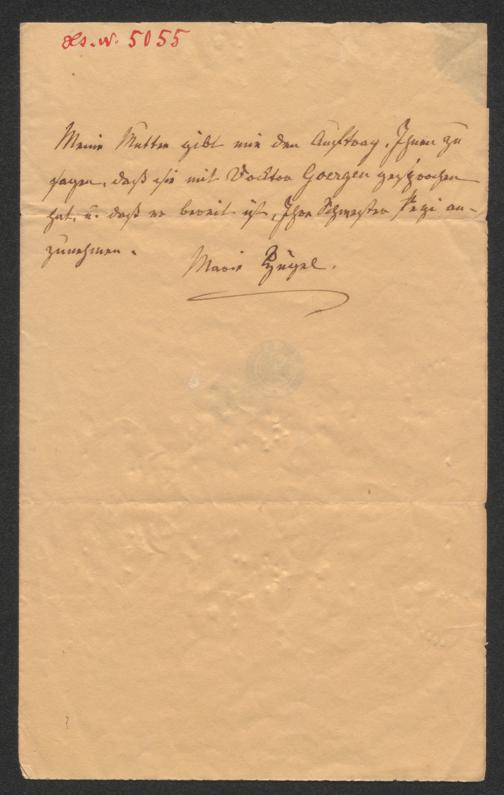 Hs. N. 5055
Meine Mutter gibt mir den Auftrag, Ihnen zu
sagen, daß sie mit Docktor Goergen gesprochen
hat, u. daß er bereit ist, Ihre Schwester Pepi an-
zunehmen.
Marie Zügel.